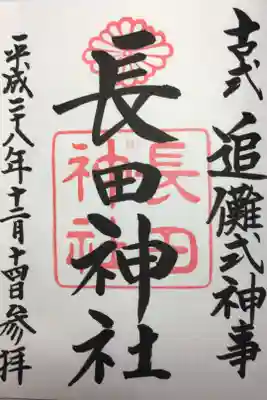 古式 追儺式神事
長田神社
長田神社
平成二十八年十二月十四日参拝